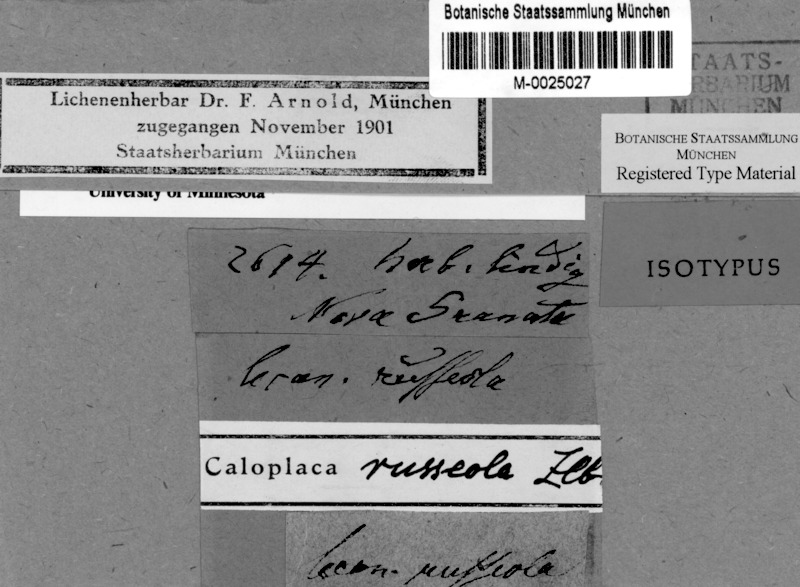 Botanische Staatssammlung München
M-0025027
STAATS-
HERBARIUM
MÜNCHEN
Lichenenherbar Dr. F. Arnold, München
zugegangen November 1901
Staatsherbarium München
BOTANISCHE STAATSSAMMLUNG
MÜNCHEN
Registered Type Material
University of Minnesota
ISOTYPUS
2614. hrb. Lindig
Nova Granata
Lecan. russeola
Caloplaca russeola Zlb.
Lecan. russeola